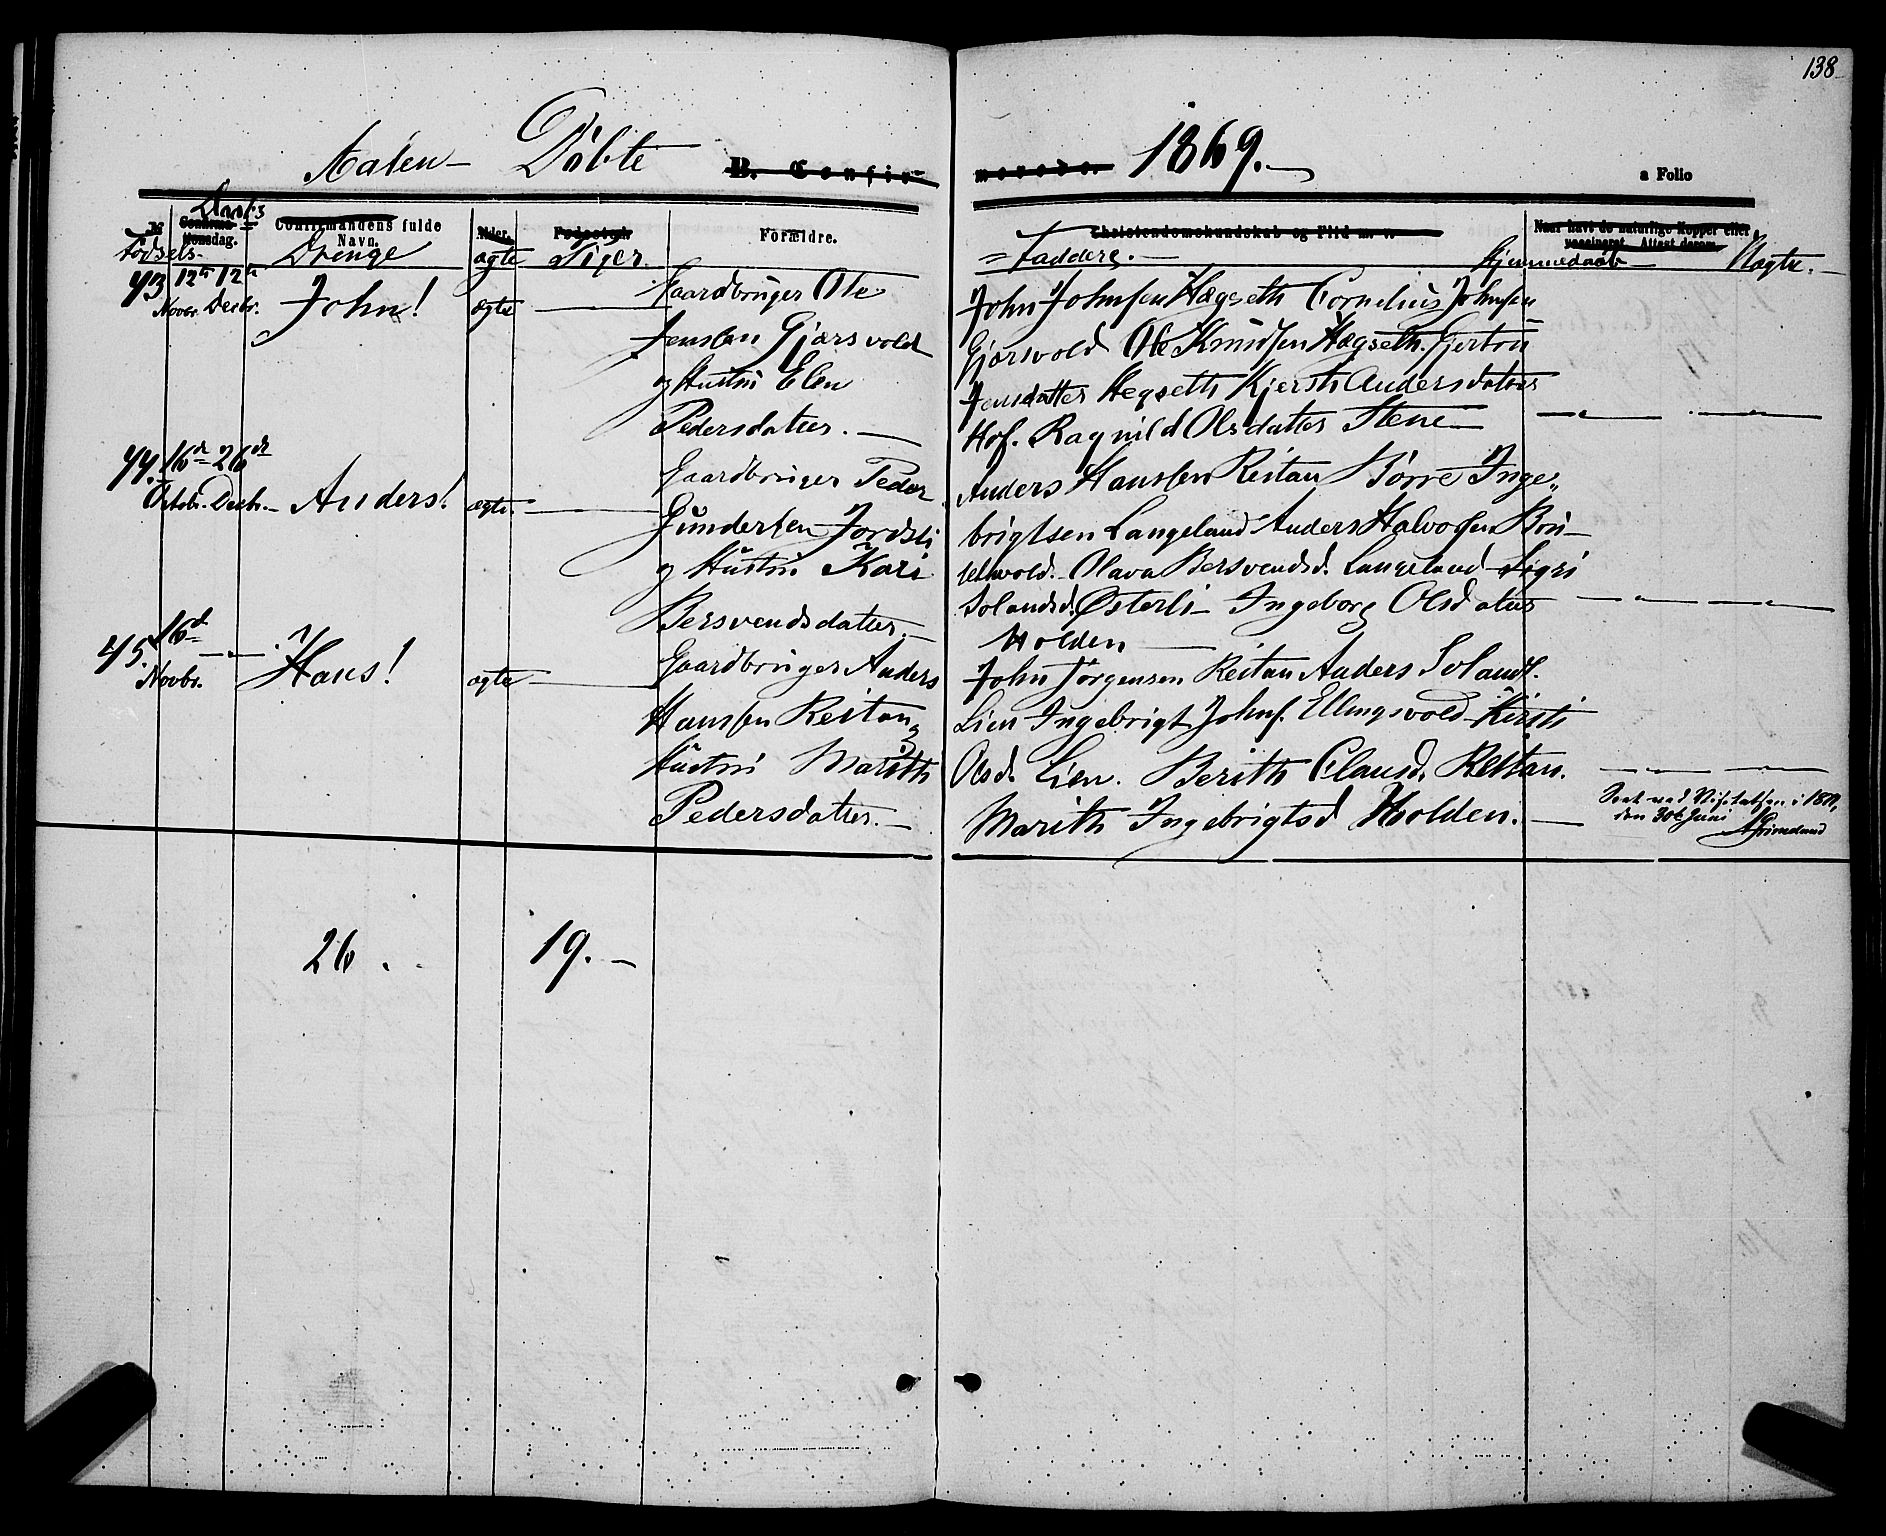 138
Aalen Døbte B. Confir- merede. 1869. a Folio
Daabs
№ Confirma-tionsdag. Confirmandens fulde Navn. Alder. Fødested. Forældre. Christendomskundskab og Flid m. v. Naar havt de naturlige Kopper eller vaccineret. Attest derom.
Fødsels- Drenge ægte Piger. Faddere. Hjemmedaab Uægte.
43 12te 12te Novbr. Decbr. John! ægte
Gaardbruger Ole
Jensen Gjærsvold
og Hustru Elen
Pedersdatter.
John Johnsen Hægseth Cornelius Johnsen
Gjærsvold Ole Knudsen Hægseth. Gjertru
Jensdatter Hegseth Kjersti Andersdatter
Hof. Ragnild Olsdatter Stene
44. 16de 26de Octobr. Decbr. Anders! ægte.
Gaardbruger Peder
Gundersen Jordsli
og Hustru Kari
Bersvendsdatter.
Anders Hansen Reitan Børre Inge-
brigtsen Langeland Anders Halvorsen Brü-
sethvold. Olava Bersvendsd. Langeland Sigri
Solandsd. Østerli Ingeborg Olsdatter
Holden
45. 16de Novbr. Hans! ægte
Gaardbruger Anders
Hansen Reitan og
Hustru Marith
Pedersdatter.
John Jørgensen Reitan Anders Solands.
Lien Ingebrigt Johns. Ellingsvold Kirsti
Olsd. Lien. Berith Clausd. Reitan.
Marith Ingebrigtsd Holden.
Seet ved Visitatsen i 1870,
den 30te Juni Grimelund
26. 19.